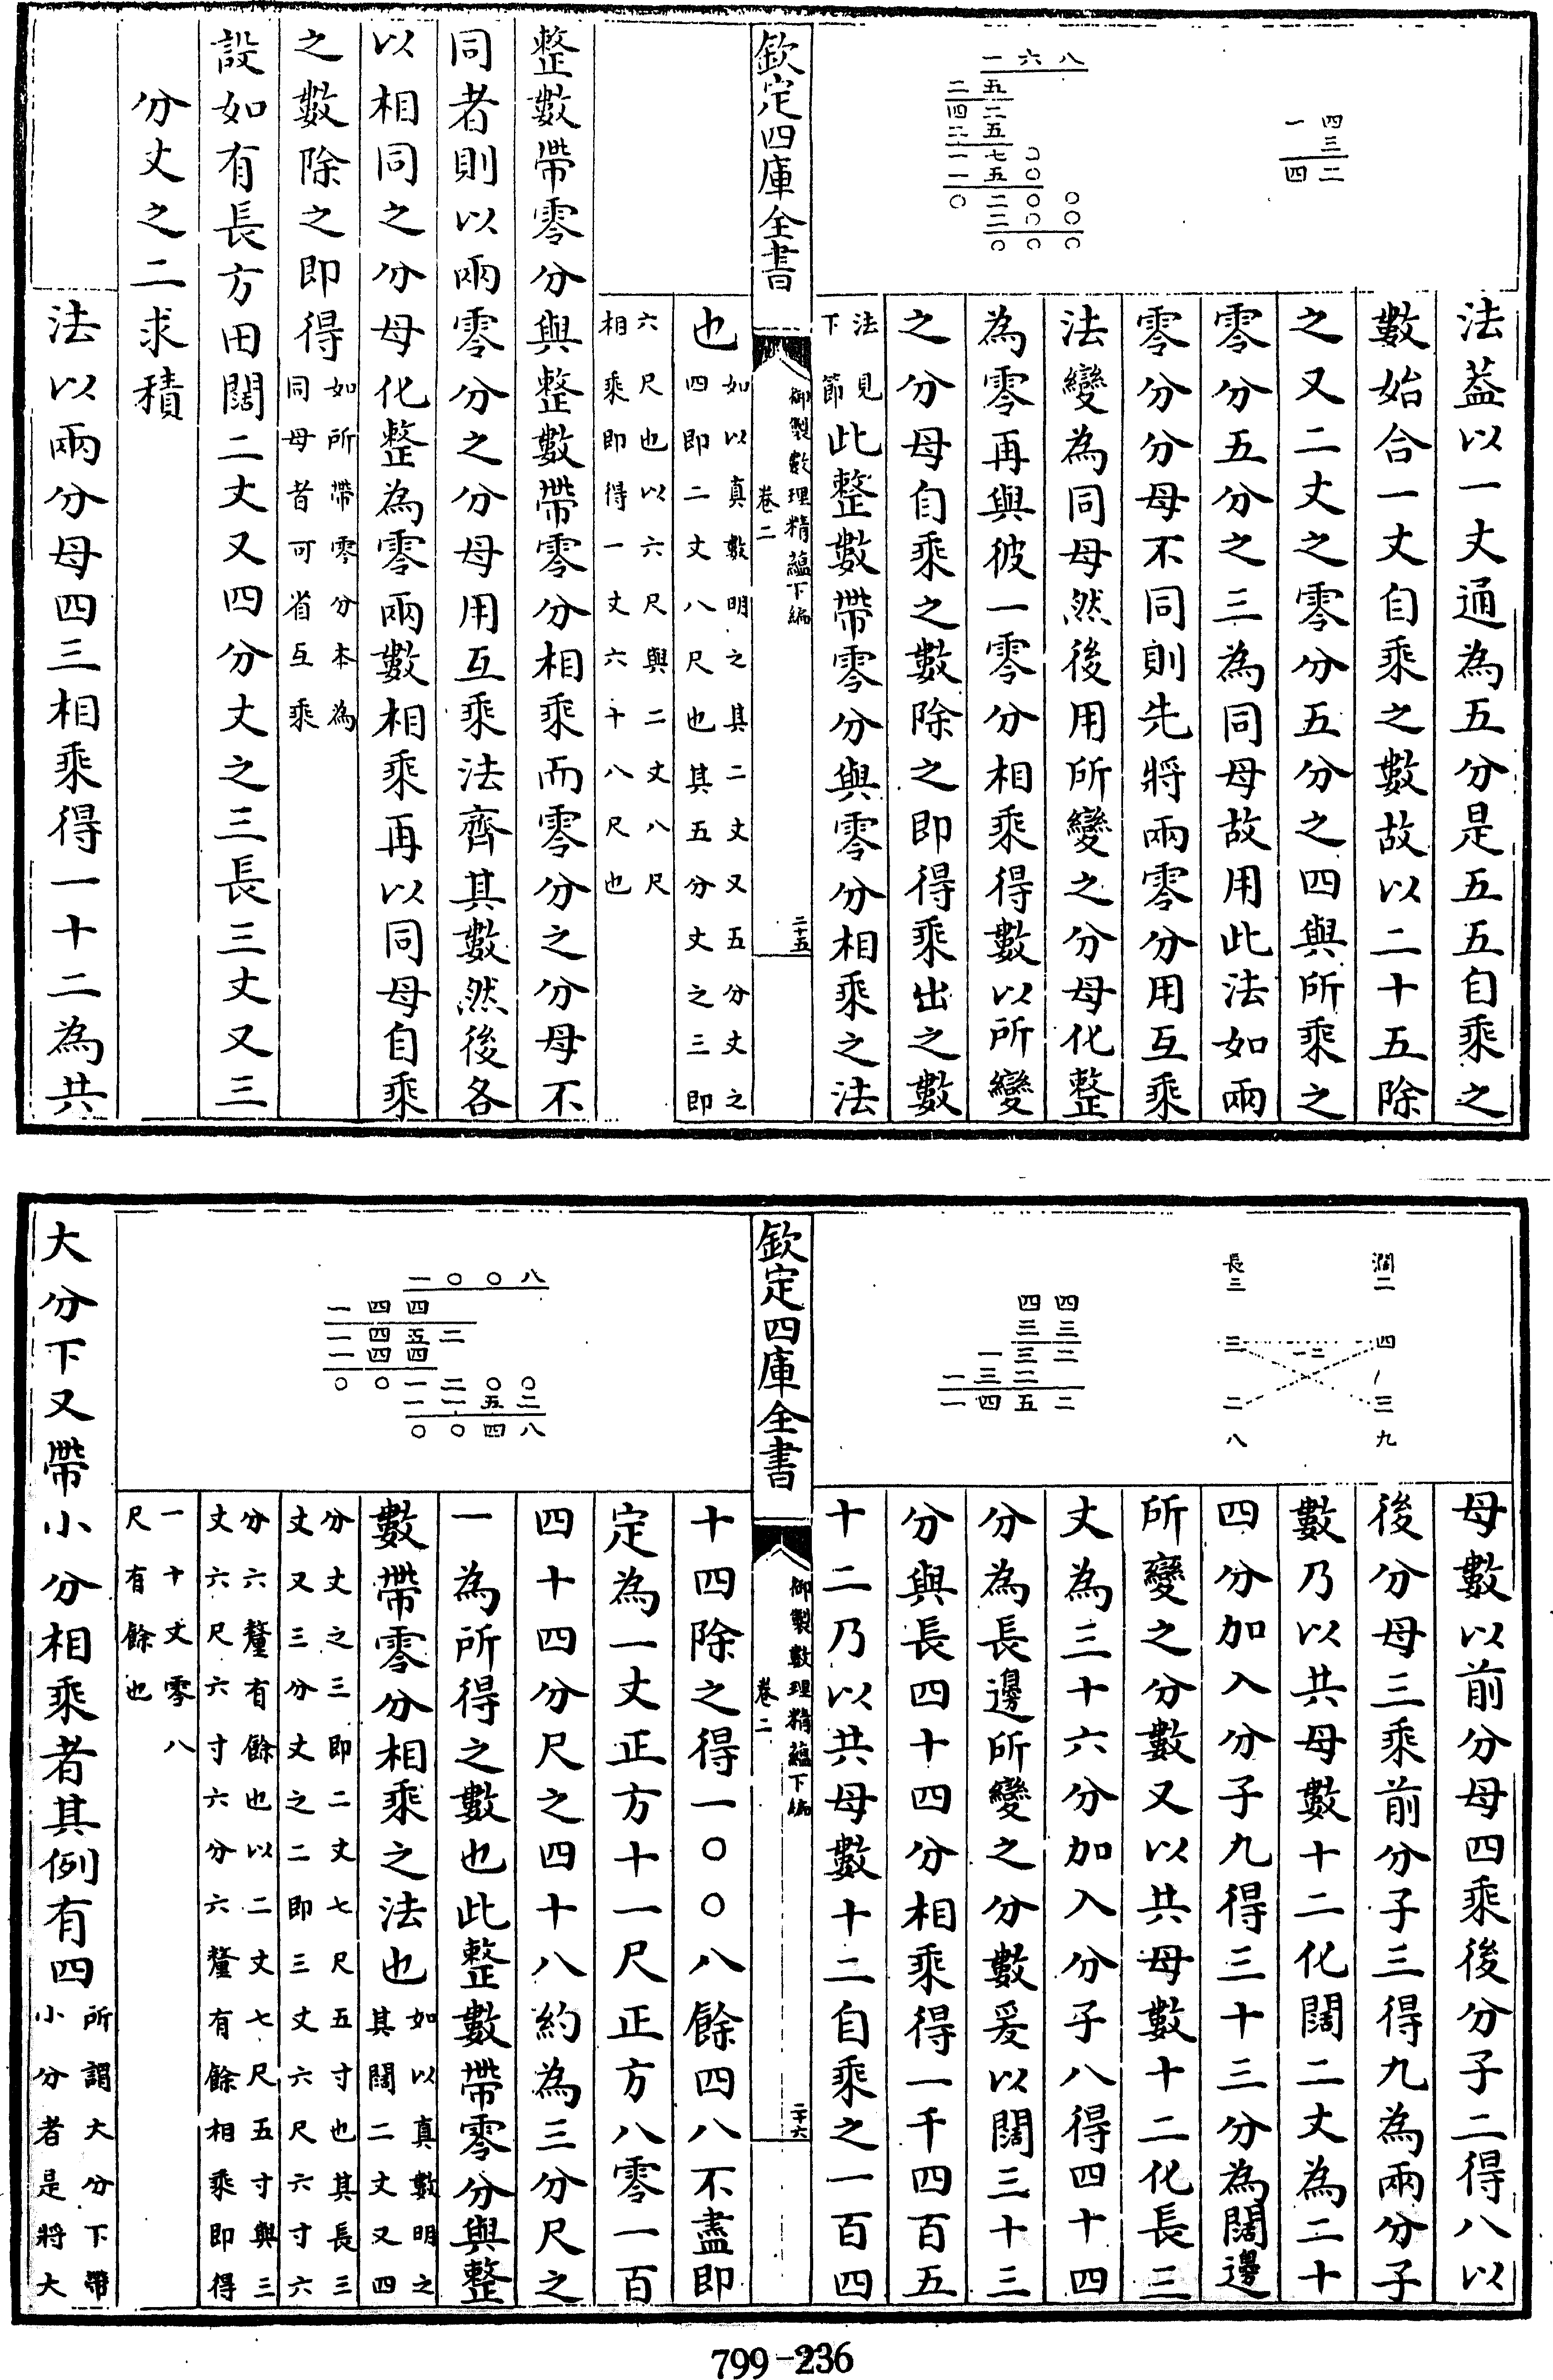 一六八
二五
四二五
二五
一七五〇
一五〇
〇二〇〇
二〇〇
〇〇〇
四三
一
四二
法葢以一丈通為五分是五五自乘之
數始合一丈自乘之數故以二十五除
之又二丈之零分五分之四與所乘之
零分五分之三為同母故用此法如兩
零分分母不同則先將兩零分用互乘
法變為同母然後用所變之分母化整
為零再與彼一零分相乘得數以所變
之分母自乘之數除之即得乘出之數
法見
下節
此整數帶零分與零分相乘之法
欽定四庫全書
御製數理精蘊下編
卷二
二十五
也
如以真數明之其二丈又五分丈之
四即二丈八尺也其五分丈之三即
六尺也以六尺與二丈八尺
相乘即得一丈六十八尺也
整數帶零分與整數帶零分相乘而零分之分母不
同者則以兩零分之分母用互乘法齊其數然後各
以相同之分母化整為零兩數相乘再以同母自乘
之數除之即得
如所帶零分本為
同母者可省互乘
設如有長方田闊二丈又四分丈之三長三丈又三
分丈之二求積
法以兩分母四三相乘得一十二為共
濶二
長三
四
三
一二
三
二
九
八
四四
三三
一三二
一三二
一四五二
母數以前分母四乘後分子二得八以
後分母三乘前分子三得九為兩分子
數乃以共母數十二化闊二丈為二十
四分加入分子九得三十三分為闊邊
所變之分數又以共母數十二化長三
丈為三十六分加入分子八得四十四
分為長邊所變之分數爰以闊三十三
分與長四十四分相乘得一千四百五
十二乃以共母數十二自乘之一百四
欽定四庫全書
御製數理精蘊下編
卷二
二十六
一〇〇八
一四四
一四五二
一四四
〇〇一二〇〇
一一五二
〇〇四八
十四除之得一〇〇八餘四八不盡即
定為一丈正方十一尺正方八零一百
四十四分尺之四十八約為三分尺之
一為所得之數也此整數帶零分與整
數帶零分相乘之法也
如以真數明之
其闊二丈又四
分丈之三即二丈七尺五寸也其長三
丈又三分丈之二即三丈六尺六寸六
分六釐有餘也以二丈七尺五寸與三
丈六尺六寸六分六釐有餘相乘即得
一十丈零八
尺有餘也
大分下又帶小分相乘者其例有四
所謂大分下帶
小分者是將大
799-236